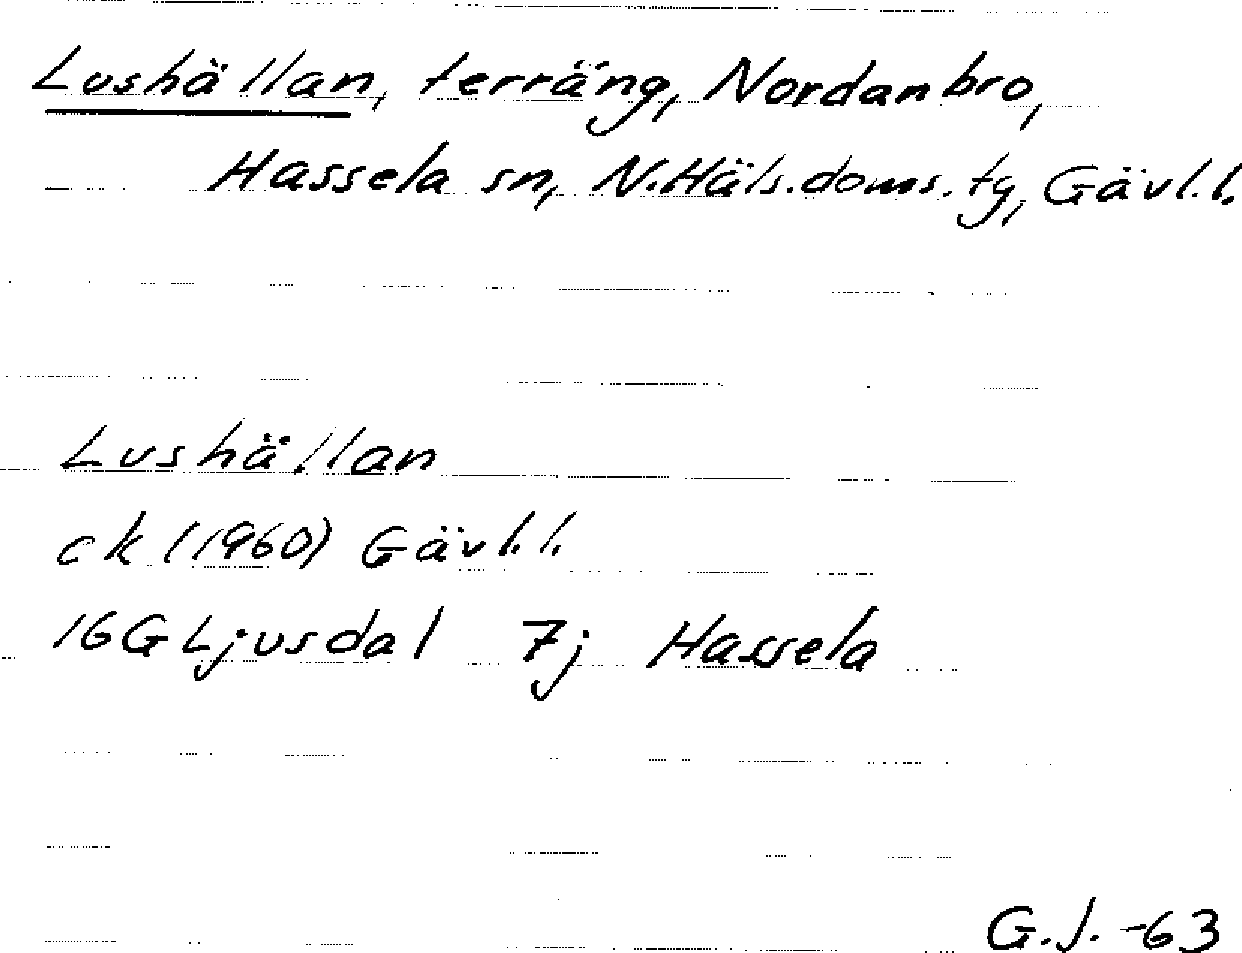 Lushällan, terräng, Nordanbro,
Hassela sn, N.Häls.doms.tg, Gävl.l.
Lushällan
ek (1960) Gävl.l.
16G Ljusdal 7j Hassela
G.J. -63